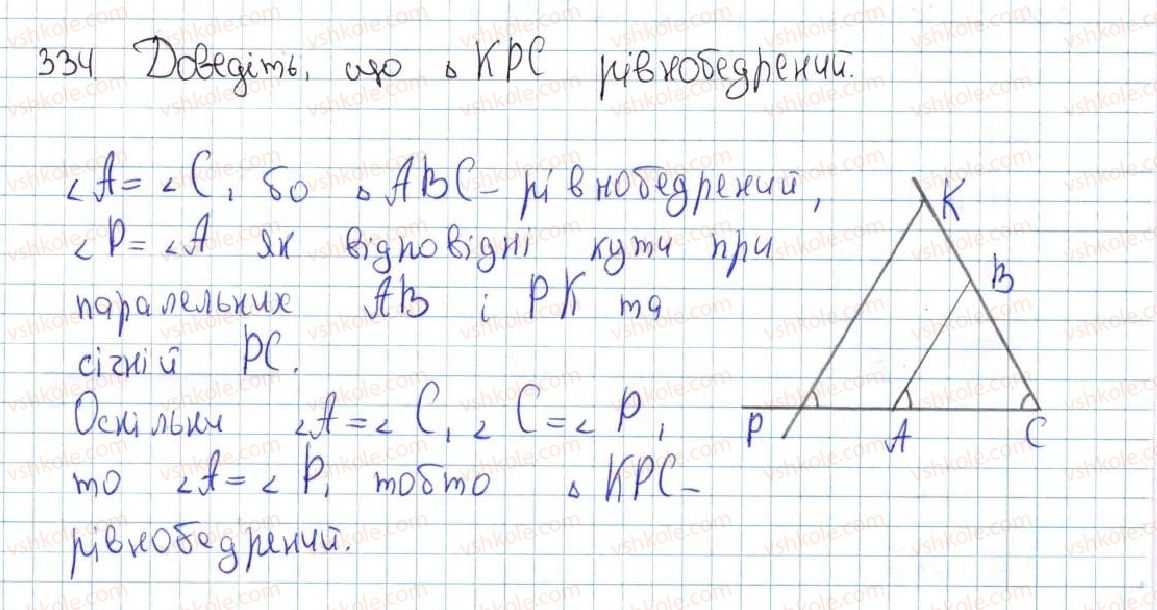 334 Доведіть, що △ KPC рівнобедрений.
∠A = ∠C, бо △ ABC – рівнобедрений,
∠P = ∠A як відповідні кути при
паралельних AB і PK та
січній PC.
Оскільки ∠A = ∠C, ∠C = ∠P,
то ∠A = ∠P, тобто △ KPC –
рівнобедрений.
K
B
P
A
C
vshkole.com